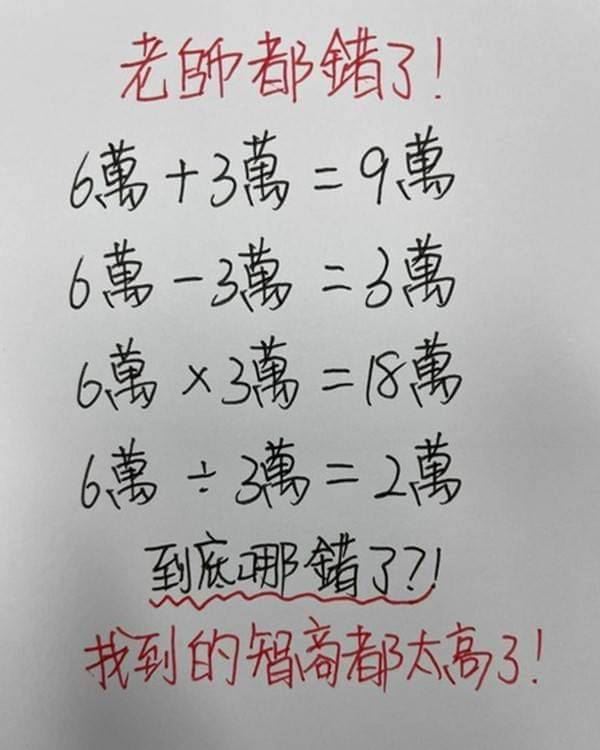 老師都錯了!
6萬+3萬=9萬
6萬-3萬=3萬
6萬×3萬=18萬
6萬÷3萬=2萬
到底哪錯了?!
找到的智商都太高了!